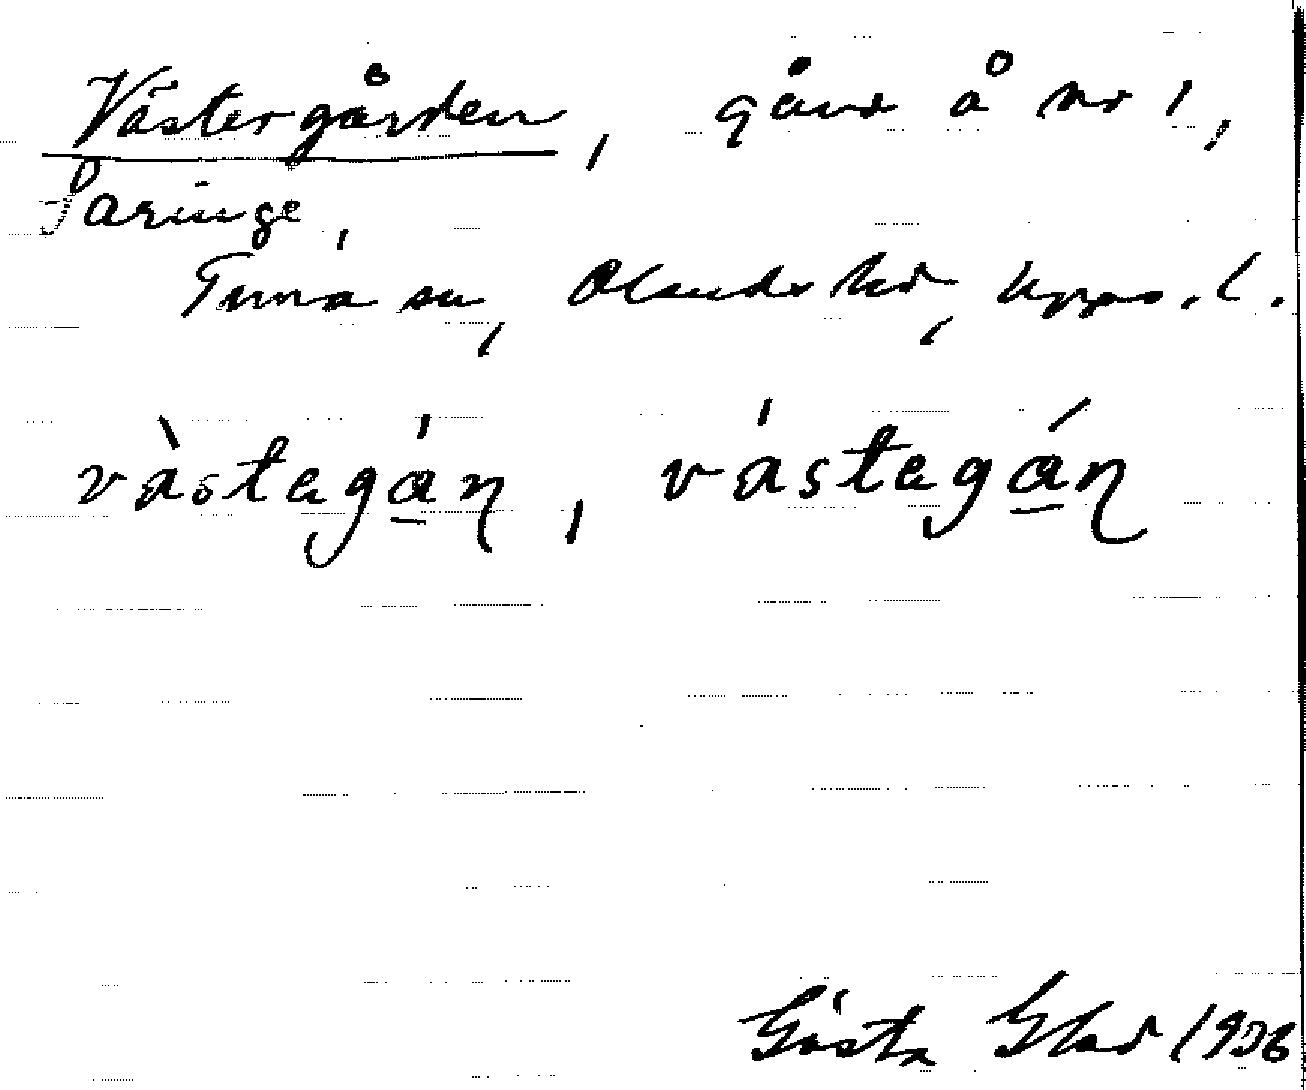 Västergården, gård å nr 1,
Faringe,
Tuna sn, Olands hd, Upps. l.
vàstegá̱ɳ, vástegá̱ɳ
Gösta Glad 1938